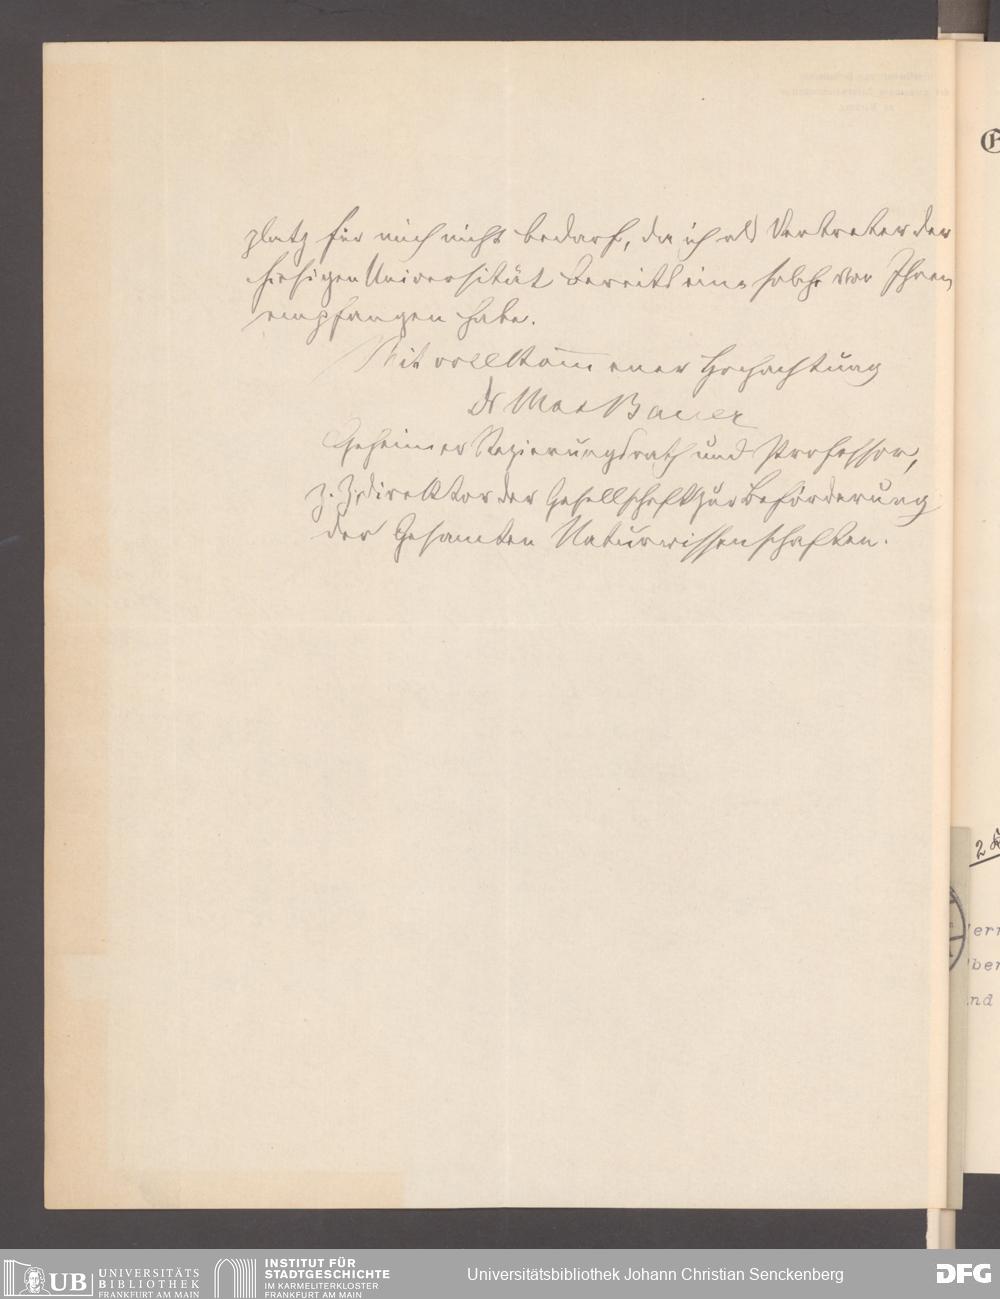 platz für mich nicht bedarf, da ich als Vertreter der
hiesigen Universität bereits eine solche von Ihnen
empfangen habe.
Mit vollkom̄ener Hochachtung
Dr Max Bauer
Geheimer Regierungsrath und Professor,
z. Z. Direktor der Gesellschaft zur Beförderung
der Gesamten Naturwissenschaften.
2
UB
UNIVERSITÄTS
BIBLIOTHEK
FRANKFURT AM MAIN
INSTITUT FÜR
STADTGESCHICHTE
IM KARMELITERKLOSTER
FRANKFURT AM MAIN
Universitätsbibliothek Johann Christian Senckenberg
DFG